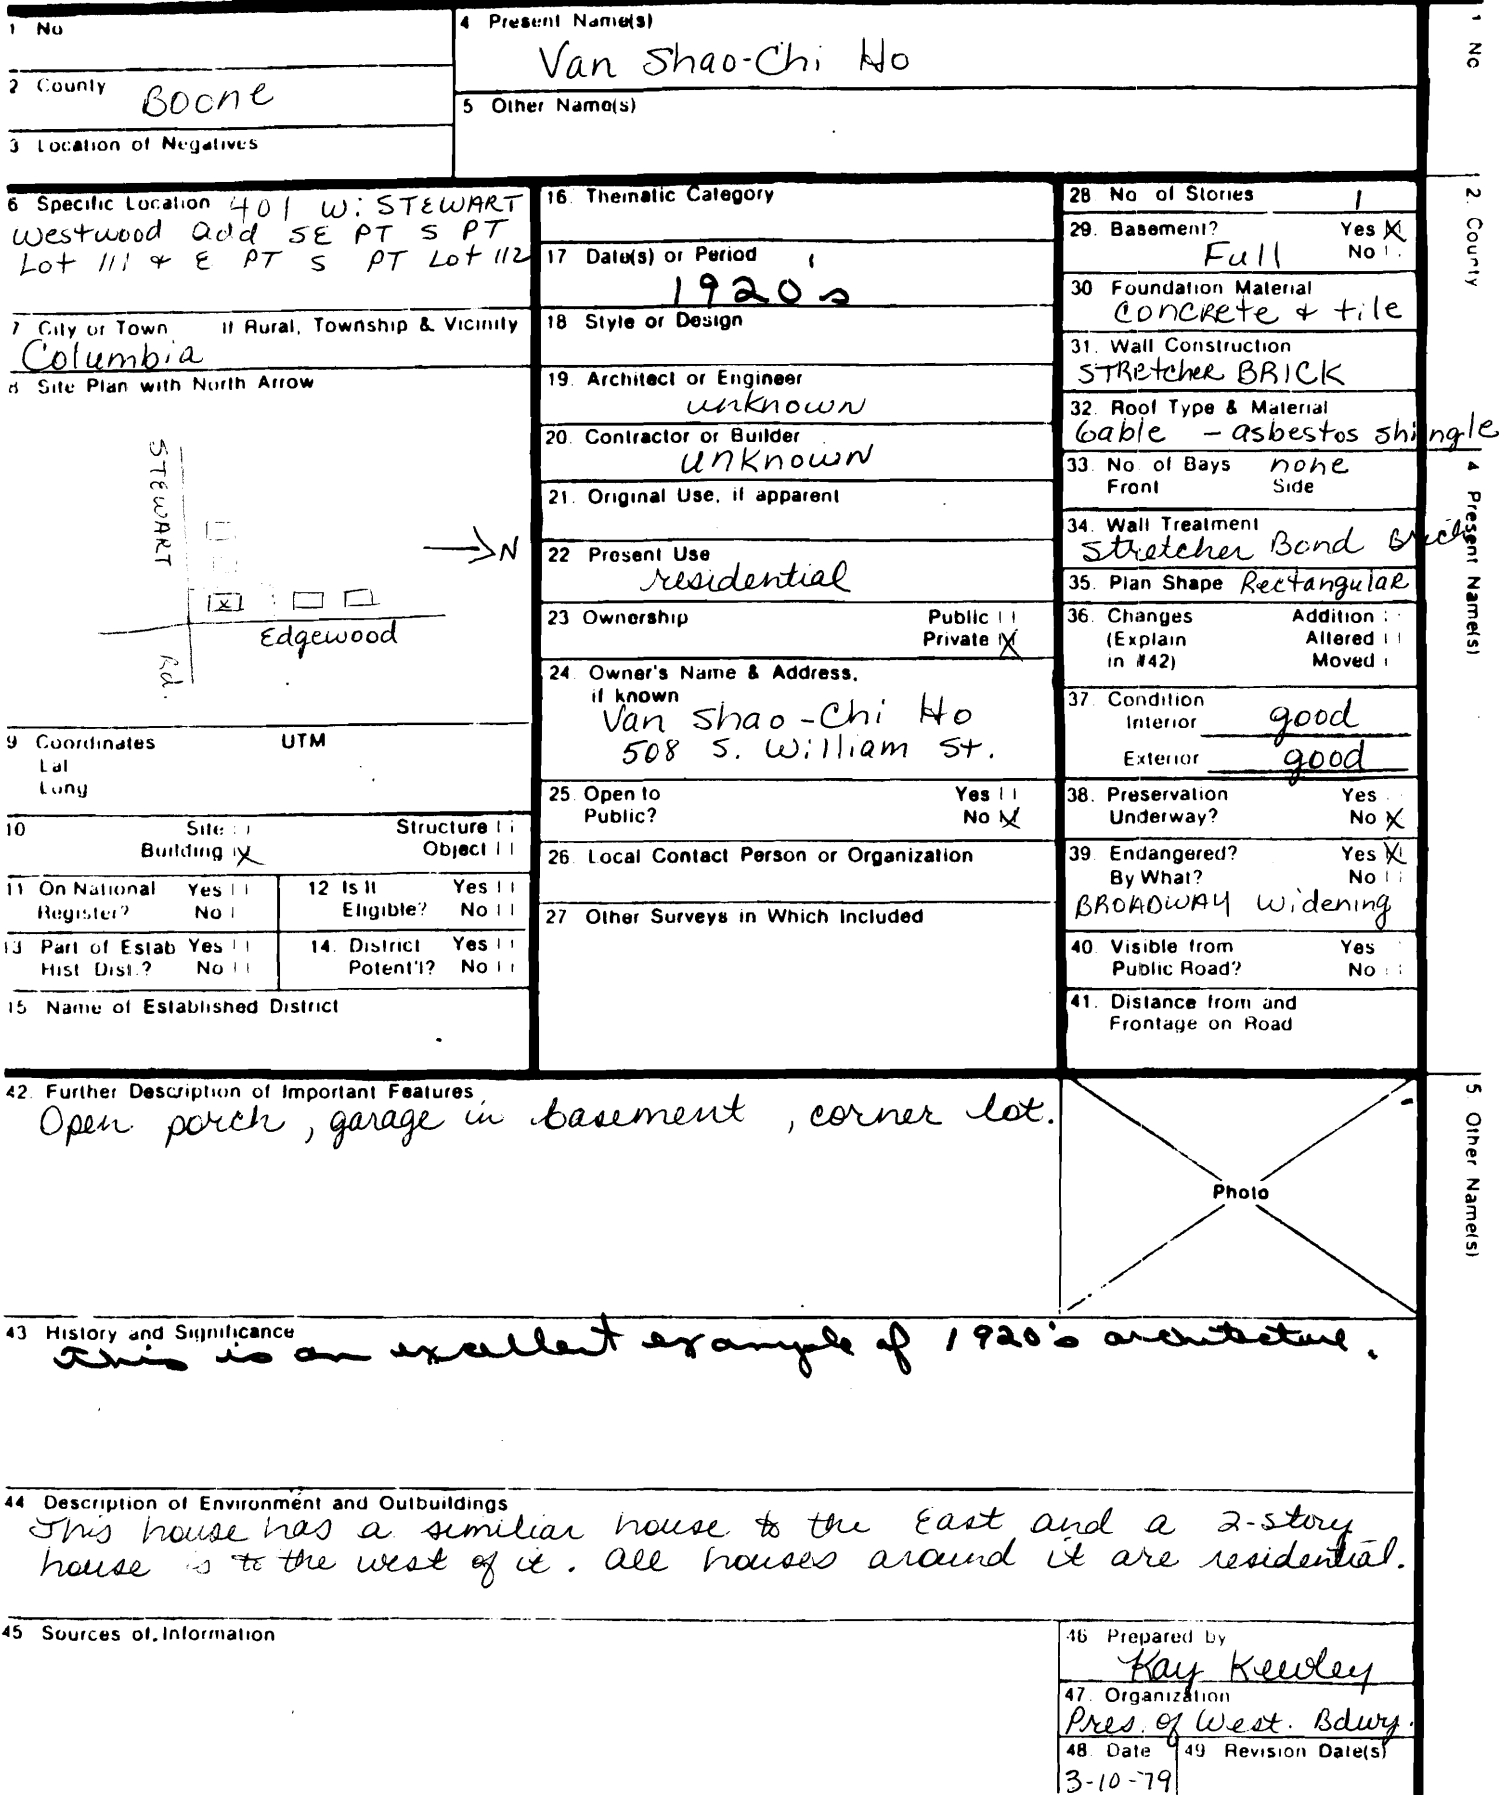 1 No
4 Present Name(s)
Van Shao-Chi Ho
2 County
Boone
5 Other Name(s)
3 Location of Negatives
6 Specific Location 401 W. STEWART
Westwood add SE PT S PT
Lot 111 & E PT S PT Lot 112
7 City or Town If Rural, Township & Vicinity
Columbia
8 Site Plan with North Arrow
STEWART Rd.
N
X
Edgewood
9 Coordinates UTM
Lat
Long
10 Site Structure
Building X Object
11 On National Register? Yes No
12 Is It Eligible? Yes No
13 Part of Estab Hist Dist.? Yes No
14. District Potent'l? Yes No
15 Name of Established District
16. Thematic Category
17 Date(s) or Period
1920s
18 Style or Design
19. Architect or Engineer
unknown
20. Contractor or Builder
unknown
21. Original Use, if apparent
22 Present Use
residential
23 Ownership Public
Private X
24. Owner's Name & Address,
if known
Van Shao-Chi Ho
508 S. William St.
25. Open to Yes
Public? No X
26. Local Contact Person or Organization
27 Other Surveys in Which Included
28 No of Stories 1
29. Basement? Yes X
Full No
30 Foundation Material
Concrete & tile
31. Wall Construction
STRetcher BRICK
32. Roof Type & Material
Gable - asbestos shingle
33. No of Bays none
Front Side
34. Wall Treatment
Stretcher Bond Brick
35. Plan Shape Rectangular
36. Changes Addition
(Explain Altered
in #42) Moved
37. Condition
Interior good
Exterior good
38. Preservation Yes
Underway? No X
39. Endangered? Yes X
By What? No
BROADWAY widening
40. Visible from Yes
Public Road? No
41. Distance from and
Frontage on Road
42. Further Description of Important Features
Open porch, garage in basement, corner lot.
Photo
43 History and Significance
This is an excellent example of 1920's architecture.
44 Description of Environment and Outbuildings
This house has a similiar house to the East and a 2-story
house is to the west of it. All houses around it are residential.
45 Sources of Information
46 Prepared by
Kay Kewley
47. Organization
Pres. of West. Bdwy.
48. Date 49 Revision Date(s)
3-10-79
1 No
2. County
4 Present Name(s)
5 Other Name(s)